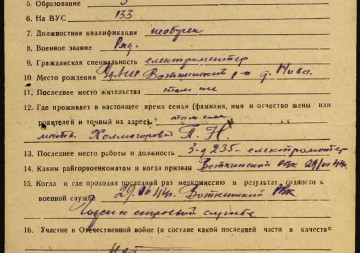 5. Образование 3
6. На ВУС 133
7. Должностная квалификация необучен
8. Военное звание Ряд.
9. Гражданская специальность електромонтер
10 Место рождения Удм. АССР Воткинский р-н д. Кива.
11. Последнее место жительства там же
12. Где проживает в настоящее время семья (фамилия, имя и отчество жены или
родителей и точный их адрес) там же
мать Холмогорова П. Н
13. Последнее место работы и должность З-д 235- електромонтер
14. Каким райгорвоенкоматом и когда призван Воткинский РВК 29/VI 44г.
15. Когда и где проходил последний раз медкомиссию и результат годности к
военной службе 29/VI 44г. Воткинский РВК
Годен к строевой службе
16. Участие в Отечественной войне (в составе какой последней части в качестве
Нет